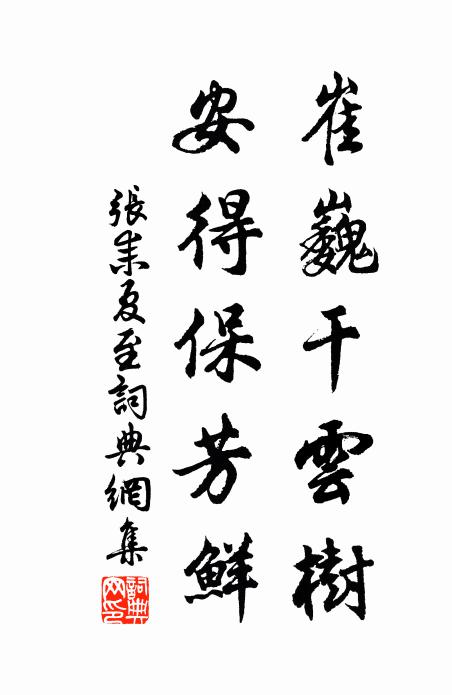 崔巍干雲樹
安得保芳鮮
張耒夏至詞典網集
詞典
网印